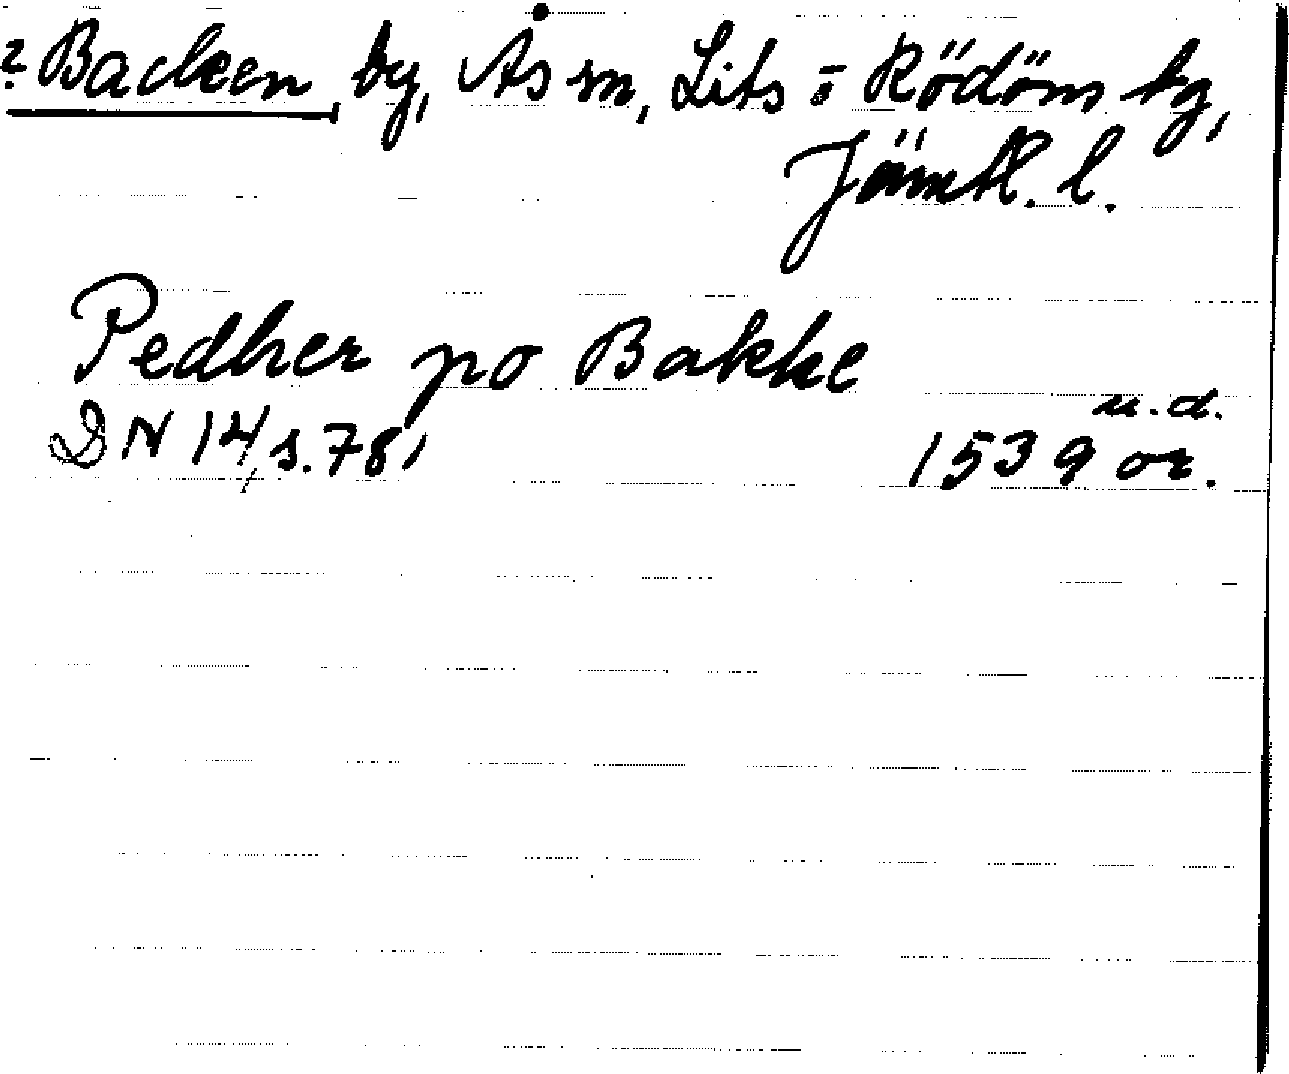 ? Backen, by, Ås sn, Lits o Rödöns tg,
Jämtl. l.
Pedher po Bakke
u.d.
DN 14/ s. 781 1539 or.